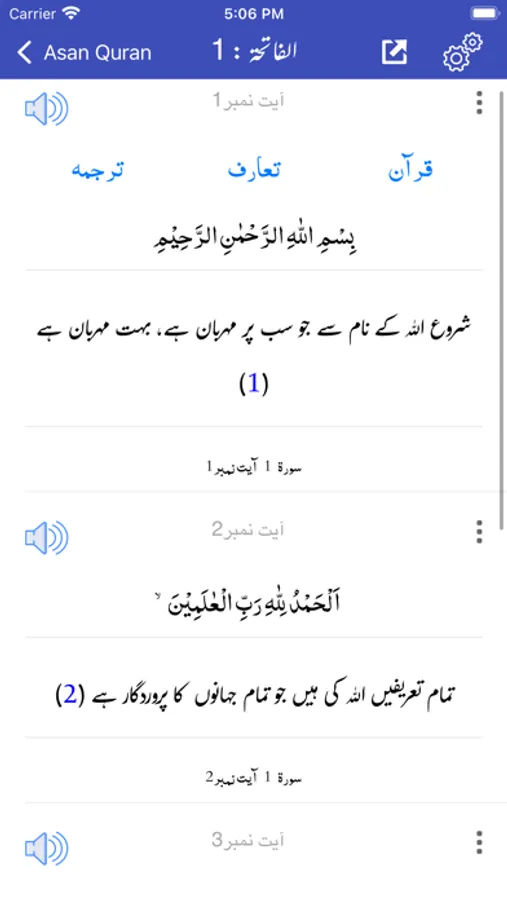 Carrier 5:06 PM
Asan Quran الفاتحۃ : 1
آیت نمبر1
قرآن تعارف ترجمہ
بِسْمِ اللّٰهِ الرَّحْمٰنِ الرَّحِيْمِ
شروع اللہ کے نام سے جو سب پر مہربان ہے، بہت مہربان ہے
(1)
سورۃ 1 آیت نمبر1
آیت نمبر2
اَلْحَمْدُ لِلّٰهِ رَبِّ الْعٰلَمِيْنَ ۙ
تمام تعریفیں اللہ کی ہیں جو تمام جہانوں کا پروردگار ہے (2)
سورۃ 1 آیت نمبر2
آیت نمبر3